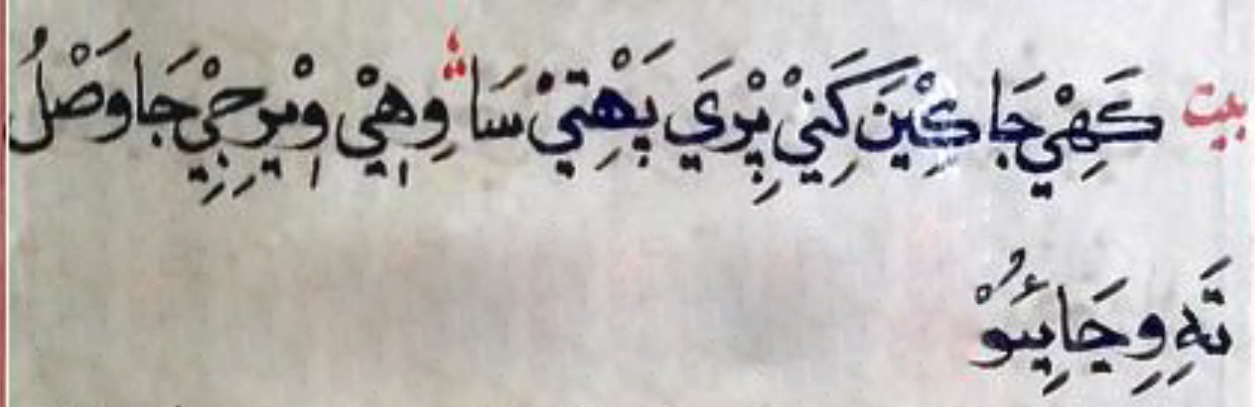 بيت كَهِيْ جَا كِيْنَ كَنِيْ بِرِيَ بَهْتِيْ سَا وِهِيْ وِيْرِجِيْ جَا وَصْلُ
تَهِ وِ جَايِئُوْ